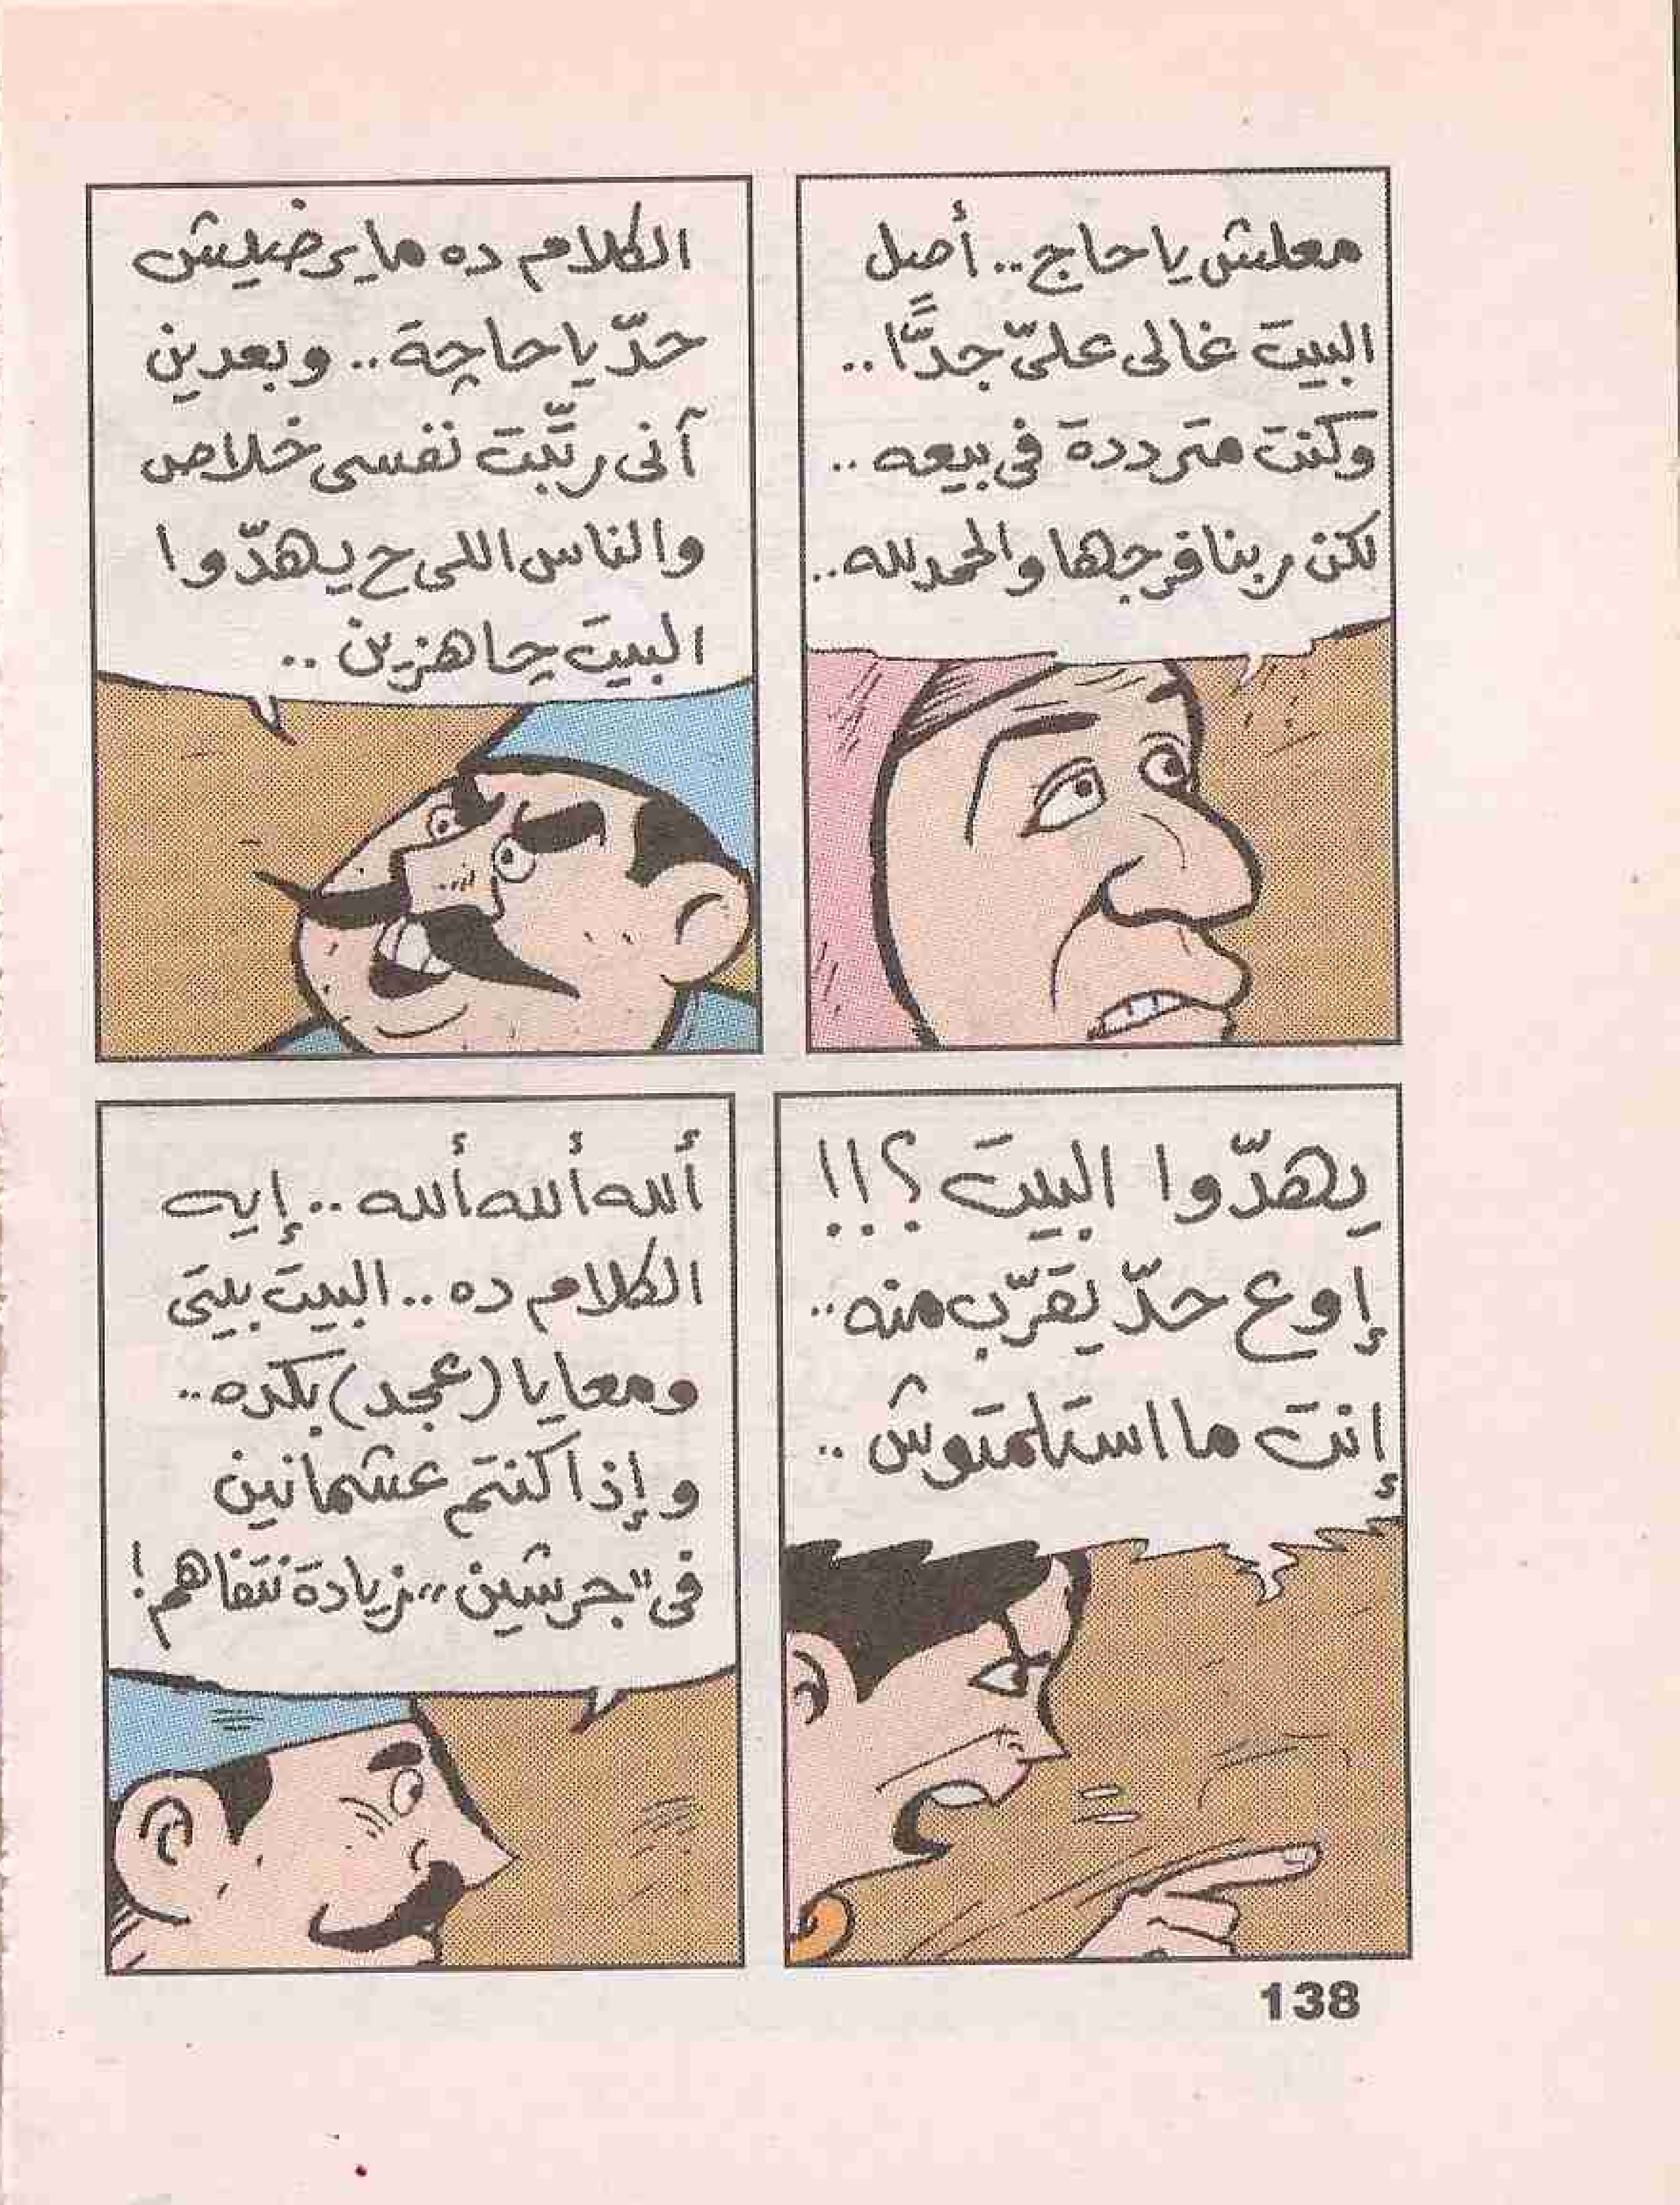 معلش يا حاج.. أصل
البيت غالى علىّ جدًّا..
وكنت مترددة فى بيعه..
لكن ربنا فرجها والحمد لله..
الكلام ده ما يرضيش
حدّ يا حاجة.. وبعدين
آنى رتّبت نفسى خلاص
والناس اللى ح يهدّوا
البيت جاهزين..
يهدّوا البيت؟!!
إوع حدّ يقرّب منه..
إنت ما استلمتوش..
ألله ألله ألله.. إيه
الكلام ده.. البيت بيتى
ومعايا (عجد) بكده..
وإذا كنتم عشمانين
فى "جرشين" زيادة نتفاهم!
138